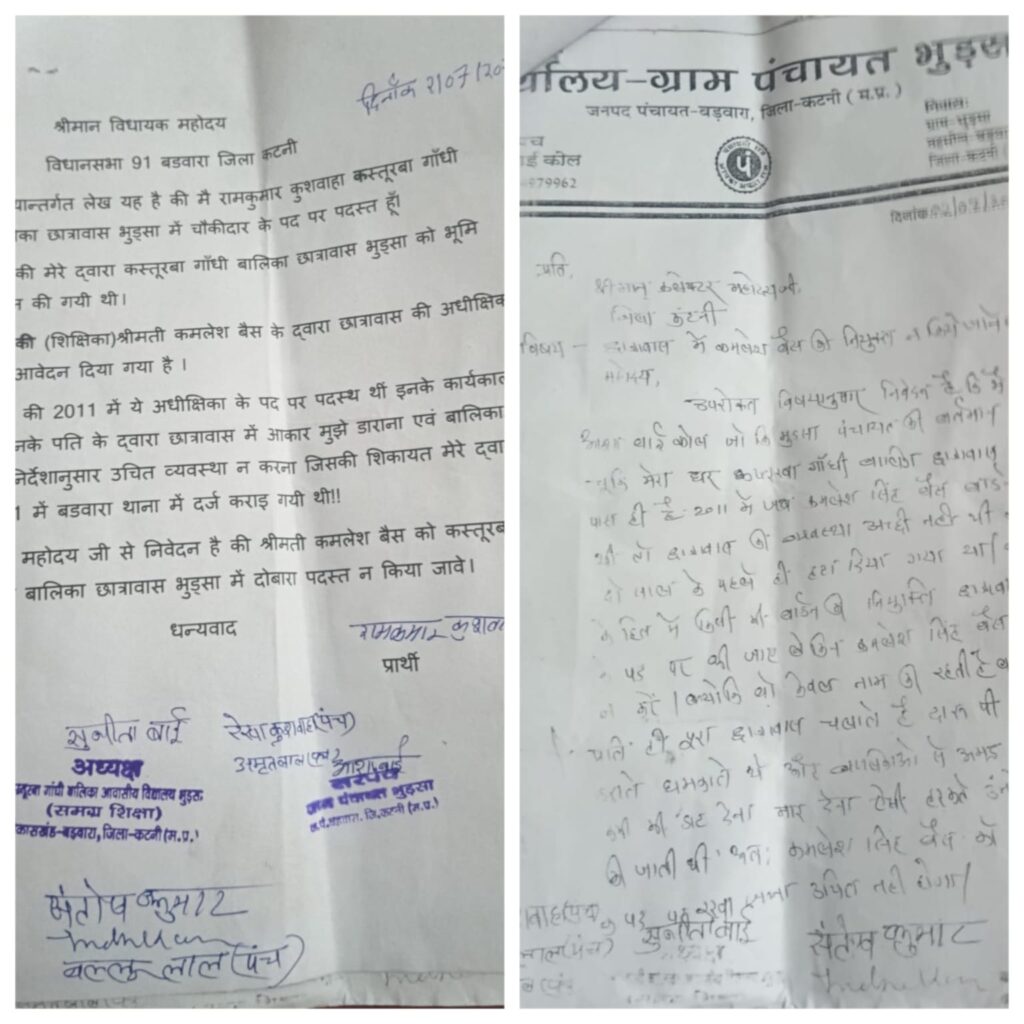 दिनाँक 2/07/20
श्रीमान विधायक महोदय
विधानसभा 91 बडवारा जिला कटनी
यान्तर्गत लेख यह है की मै रामकुमार कुशवाहा कस्तूरबा गाँधी
का छात्रावास भुड्सा में चौकीदार के पद पर पदस्त हूँ।
की मेरे द्वारा कस्तूरबा गाँधी बालिका छात्रावास भुड्सा को भूमि
न की गयी थी।
की (शिक्षिका)श्रीमती कमलेश बैस के द्वारा छात्रावास की अधीक्षिक
आवेदन दिया गया है ।
की 2011 में ये अधीक्षिका के पद पर पदस्थ थीं इनके कार्यकाल
नके पति के द्वारा छात्रावास में आकार मुझे डाराना एवं बालिका
निर्देशानुसार उचित व्यवस्था न करना जिसकी शिकायत मेरे द्वा
1 में बडवारा थाना में दर्ज कराइ गयी थी!!
महोदय जी से निवेदन है की श्रीमती कमलेश बैस को कस्तूरब
बालिका छात्रावास भुड्सा में दोबारा पदस्त न किया जावे।
धन्यवाद
रामकुमार कुशवा
प्रार्थी
सुनीता बाई रेखा कुशवाहा(पंच)
अध्यक्ष
स्तूरबा गांधी बालिका आवासीय विद्यालय भुड़सा
(समग्र शिक्षा)
कासखंड-बड़वारा, जिला-कटनी (म.प्र.)
आशा बाई
सरपंच
ग्राम पंचायत भुड़सा
ज.पं. बड़वारा, जि.कटनी (म.प्र.)
संतोष कुमार
बल्लू लाल (पंच)
र्यालय-ग्राम पंचायत भुड़स
जनपद पंचायत-बड़वारा, जिला-कटनी (म.प्र.)
च
ाई कोल
979962
निवास:
ग्राम भुड़सा
तहसील बड़वा
जिला-कटनी
दिनांक 02/07/20
प्रति,
श्रीमान कलेक्टर महोदय जी,
जिला कटनी
विषय - छात्रावास में कमलेश बैस की नियुक्त न किये जाने
महोदय,
उपरोक्त विषयानुसार निवेदन है कि मैं
बाई कोल जो कि भुड़सा पंचायत की वर्तमान
चूकि मेरा घर कस्तूरबा गाँधी बालिका छात्रावास
पास ही है 2011 में जब कमलेश सिंह बैस वार्ड
थी तो छात्रावास की व्यवस्था अच्छी नही थी
दो साल के पहले ही हटा दिया गया था।
के हित में किसी भी वार्डन की नियुक्ति छात्रावा
के पद पर की जाए लेकिन कमलेश सिंह बैस
न करें। क्योकि वो केवल नाम की रहती है
पति ही पूरा छात्रावास चलाते है दारू पी
धमकाते थे और बालिकाओ से
कभी भी डाट देना मार देना ऐसी हरकते
की जाती थी अतः कमलेश सिंह बैस को
पद पर रखना उचित नही होगा।
सुनीता बाई संतोष कुमार
लाल(पंच)
अध्यक्ष